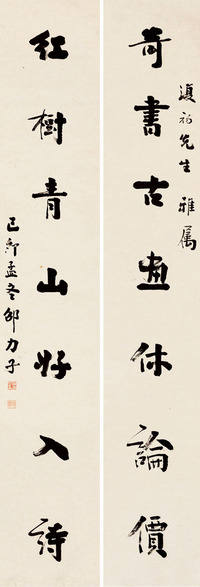 奇書古画休論價
紅樹青山好入詩
先生雅属
己卯孟冬邵力子